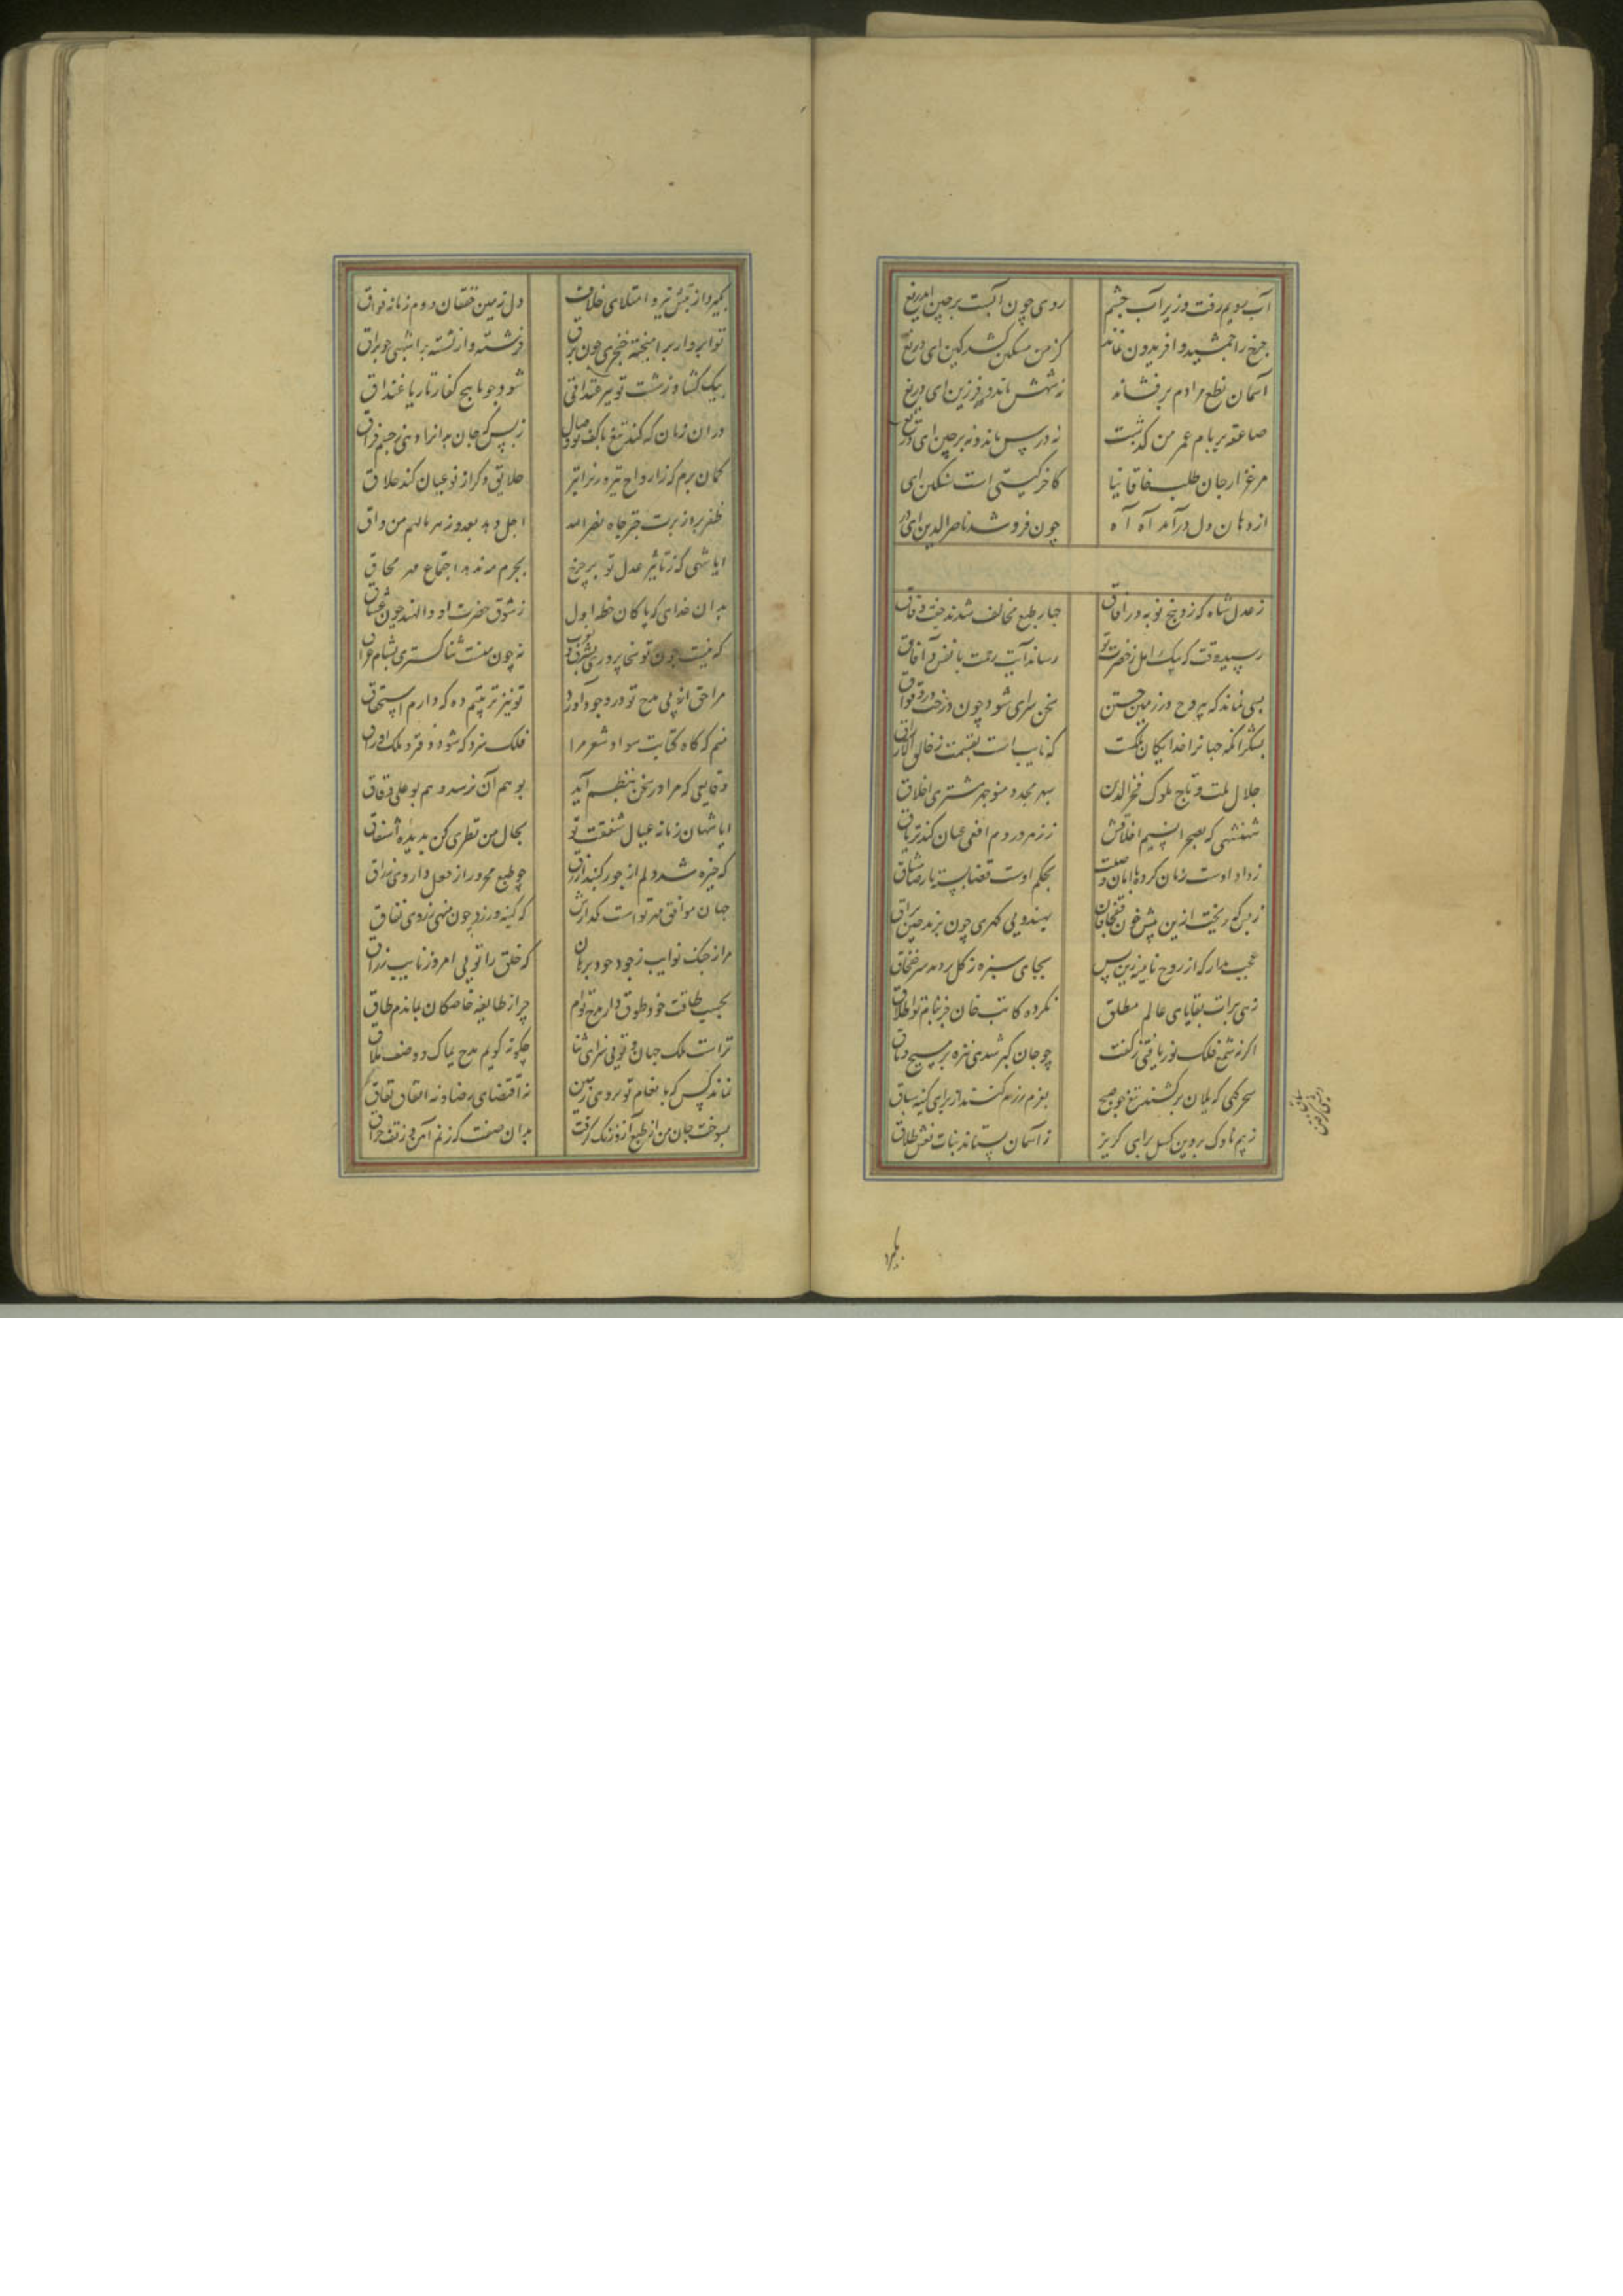 آب رویم رفت وزیر آب چشم روی چون آبست بر چین ای دریغ
چرخ را جمشید و افریدون نماند کز من مسکین کشد کین ای دریغ
آسمان نطع مرادم برفشاند نه شهش ماند و نه فرزین ای دریغ
صاعقه بر بام عمر من گذشت نه درش ماند و نه پرچین ای دریغ
مرغزار جان طلب خاقانیا کاخر گیتی است سنگین ای
از دهان دل درآمد آه آه چون فرو شد ناصرالدین ای در
ز عدل شاه که زد پنج نوبه در آفاق چهار طبع مخالف شدند جفت وفاق
رسید وقت که پیک امل ز حضرت تو رساند آیت رحمت بانفس و آفاق
بسی نماند که بی روح در زمین ختن سخن سرای شود چون درخت در وقواق
بشکر آنکه جهانرا خدایگان ملکست که نایب است بقسمت ز خالق الارزاق
جلال ملت و تاج ملوک فخرالدین سپهر مجد و منوچهر مشتری اخلاق
شهنشهی که بصحرا نسیم اخلاقش ز زهر در دم افعی عیان کند تریاق
ز داد اوست زمان کرده با امان وصلت بحکم اوست قضا بسته با رضا میثاق
ز بس که ریخت ازین پیش خون خفچاقان بهندویی گهری چون پرند چین براق
عجب مدار که از روح نامیه زین پس بجای سبزه ز گل بر دمد سر خفچاق
زهی برات بقایای عالم مطلق نکرده کاتب جان جز بنام تو اطلاق
اگر نه شمع فلک نور یافتی ز کفت چو جان گبر شدی تیره بر مسیح وثاق
سحرگهی که یلان برکشند تیغ چو صبح بعزم رزم کنند از برای کینه سباق
ز بیم ناوک پروین گسل برای گریز ز آسمان بستاند بنات نعش طلاق
بگیرد از تپش تیر و امتلای خلاف دل زمین خفقان و دم زمانه فواق
تو ابروار برآهیخته خنجری چون برق فرشته وار نشسته بر اشهبی چو براق
بیک گشاد ز شست تو تیر غیداقی شود چو ماهیچ کفار تار یا غیداق
در آن زمان که کند تیغ با کف تو وصال ز بس که جان بدانرا دهی ز جسم فراق
گمان برم که ز ارواح تیره در زیر اثیر خلایق دگر از نو عیان کند خلاق
ظفر برد از برت چتر جاه نصرالله اجل دهد بعدو زهر مالهم من واق
ایا شهی که ز تأثیر عدل تو بر چرخ بجرم مه ندهد اجتماع مهر محاق
بدان خدای که پاکان خطه اول ز شوق حضرت او والهند چون عشاق
که نیست چون تو سخا پروری بشرق و بغرب نه چون منست ثنا گستری بشام و عراق
مرا حق از پی مدح تو در وجود آورد تو نیز تربیتم ده که دارم استحقاق
منم که گاه کتابت سواد شعر مرا فلک سزد که شود دفتر و ملک وراق
دقایقی که مرا در سخن بنظم آید بوهم آن نرسد وهم بوعلی دقاق
ایا شهان زمانه عیال شفقت تو بحال من نظری کن بدیده اشفاق
که خیره شد دلم از جور گنبد ازرق چو طبع محرور از فعل داروی زراق
جهان موافق مهر تو است مگذارش که کینه ورزد چون منی ز روی نفاق
مرا ز چنگ نوایب ز جود خود برهان که خلق را تویی امروز نایب رزاق
بحسب طاقت خود طوق دار مدح توام چرا ز طایفه خاصگان بماندم طاق
تراست ملک جهان و تویی سزای ثنا چگونه گویم مدح یماک و وصف بلاق
نماند کس که بانعام تو بروی زمین نه اقتضای رضا دادنه اتفاق نفاق
بسوخت جان من از طبع آز و زنگ گرفت بدان صفت که ز نم آهن و ز تف حراق